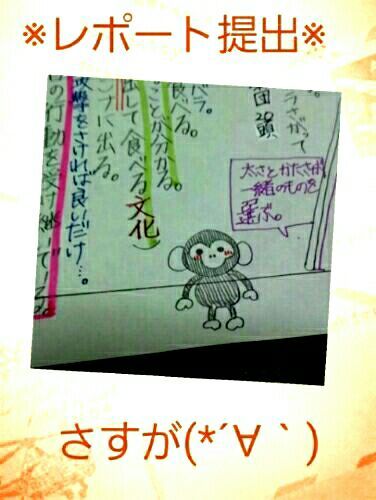 ※レポート提出※
ラさがって
団20頭
太さとかたさが
一緒のものを
選ぶ。
バラ。
食べる。
ことが分かる。
出して食べる文化)
に出る。
撃をさければ良いだけ…。
の行動を受け継いで
さすが(*´∀｀)